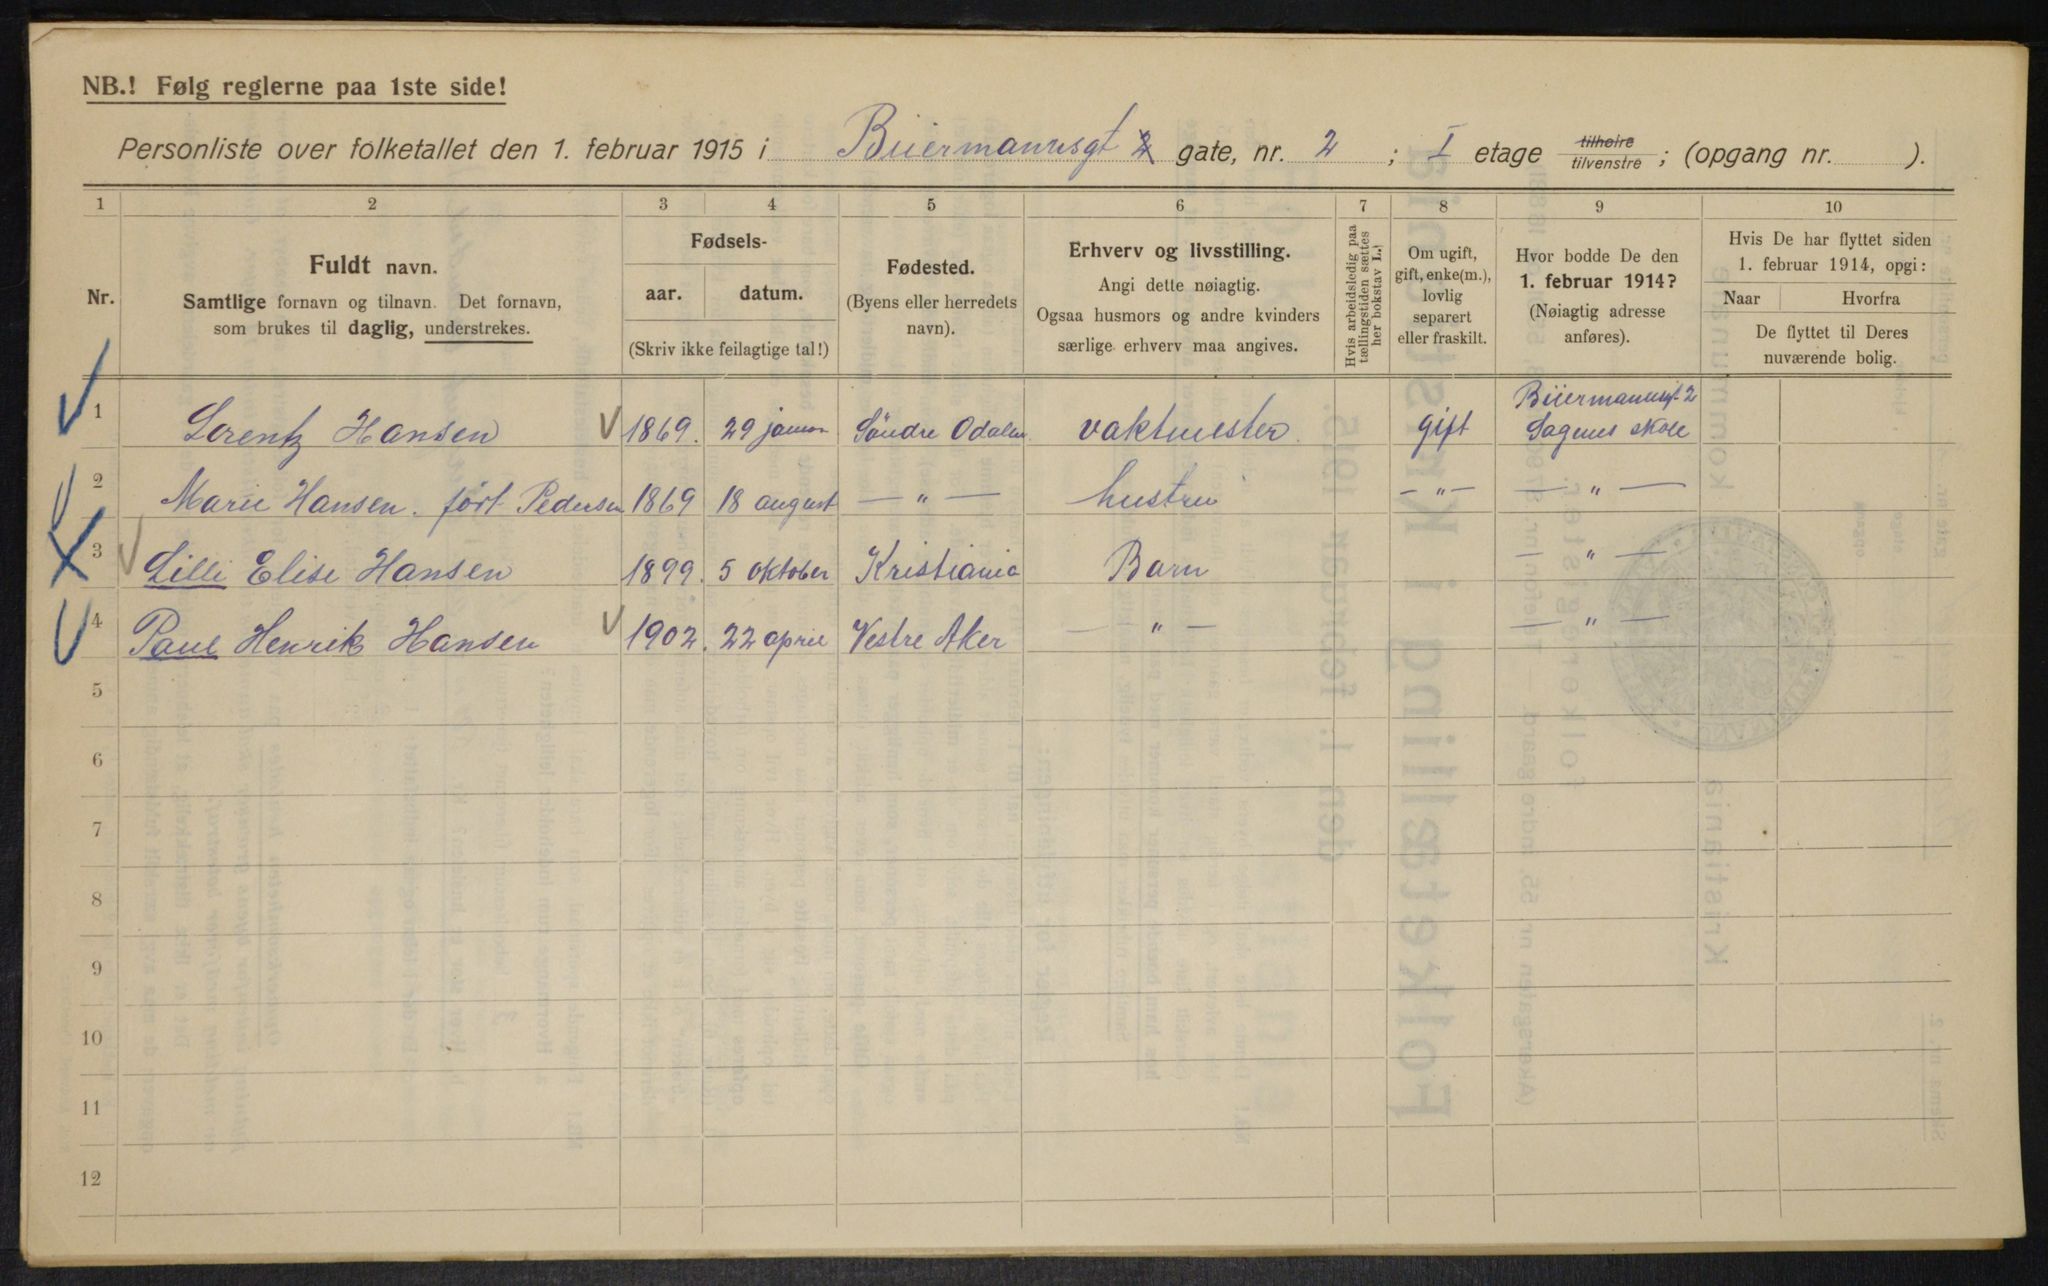 NB.! Følg reglerne paa 1ste side!
Personliste over folketallet den 1. februar 1915 i Biermannsgt 2 gate, nr. 2 ; I etage tilhøire tilvenstre ; (opgang nr. ).
1 2 3 4 5 6 7 8 9 10
Nr.
Fuldt navn.
Samtlige fornavn og tilnavn. Det fornavn,
som brukes til daglig, understrekes.
Fødsels-
aar. datum.
(Skriv ikke feilagtige tal!)
Fødested.
(Byens eller herredets
navn).
Erhverv og livsstilling.
Angi dette nøiagtig.
Ogsaa husmors og andre kvinders
særlige erhverv maa angives.
Hvis arbeidsledig paa
tællingstiden sættes
her bokstav L.!
Om ugift,
gift, enke(m.),
lovlig
separert
eller fraskilt.
Hvor bodde De den
1. februar 1914?
(Nøiagtig adresse
anføres).
Hvis De har flyttet siden
1. februar 1914, opgi:
Naar Hvorfra
De flyttet til Deres
nuværende bolig.
1 Lorentz Hansen 1869. 29 januar Söndre Odalen vaktmester. gift Biermannsgt. 2
Sagenes skole
2 Marie Hansen. født Pedersen 1869 18 august — " — hustru — " — — " —
3 Lilli Elise Hansen 1899. 5 oktober Kristiania Barn — " —
4 Paul Henrik Hansen 1902. 22 april Vestre Aker — " — — " —
5
6
7
8
9
10
11
12